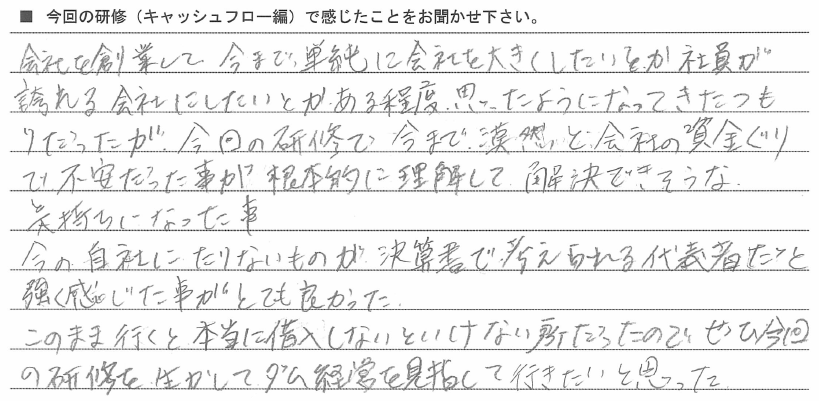 ■ 今回の研修（キャッシュフロー編）で感じたことをお聞かせ下さい。
会社を創業して 今まで、単純に会社を大きくしたいとか 社員が
誇れる 会社にしたいとか、ある程度、思ったようになってきたつも
りだったが、今回の研修で 今まで、漠然と、会社の資金ぐり
で、不安だった事が 根本的に理解して、解決できそうな、
気持ちになった事
今の 自社に、たりないものが、決算書で、考えられる代表者だと
強く感じた事がとても良かった。
このまま行くと 本当に借入しないといけない所だったので、ぜひ今回
の研修を、生かして ダム経営を見指して 行きたいと思った